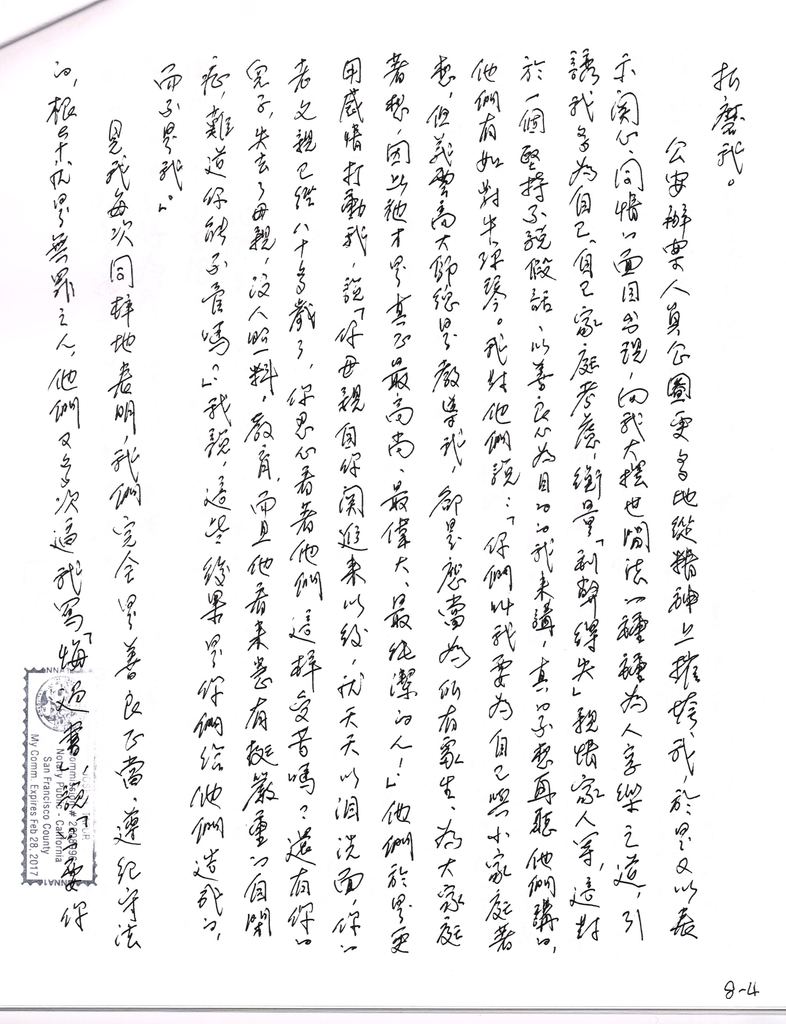 折磨我。
公安辦案人員企圖更多地從精神上摧垮我，於是又以表
示関心、同情的面目出現，向我大擺世間法的種種為人享樂之道，引
誘我多為自己、自己家庭考慮，衡量「利弊得失」，親情家人等，這對
於一個堅持不說假話、以善良心為目的的我來講，真的不想再聽他們講的，
他們有如對牛彈琴。我對他們說：「你們叫我要為自己與小家庭著
想，但義雲高大師總是教導我，卻是應當為所有眾生、為大家庭
著想，因此祂才是真正最高尚、最偉大、最純潔的人！」他們於是更
用感情打動我，說「你母親自你関進來以後，就天天以泪洗面，你的
老父親已經八十多歲了，你忍心看著他們這樣受苦嗎？還有你的
兒子，失去了母親，沒人照料，教育，而且他看來患有挺嚴重的自閉
症，難道你能不管嗎？」我說，這些後果是你們給他們造成的，
而不是我。」
見我每次同樣地表明，我們完全是善良正當、遵紀守法
的，根本就是無罪之人，他們又多次逼我寫「悔過書」，說「需要你
Notary Public - California
San Francisco County
My Comm. Expires Feb 28, 2017
8-4